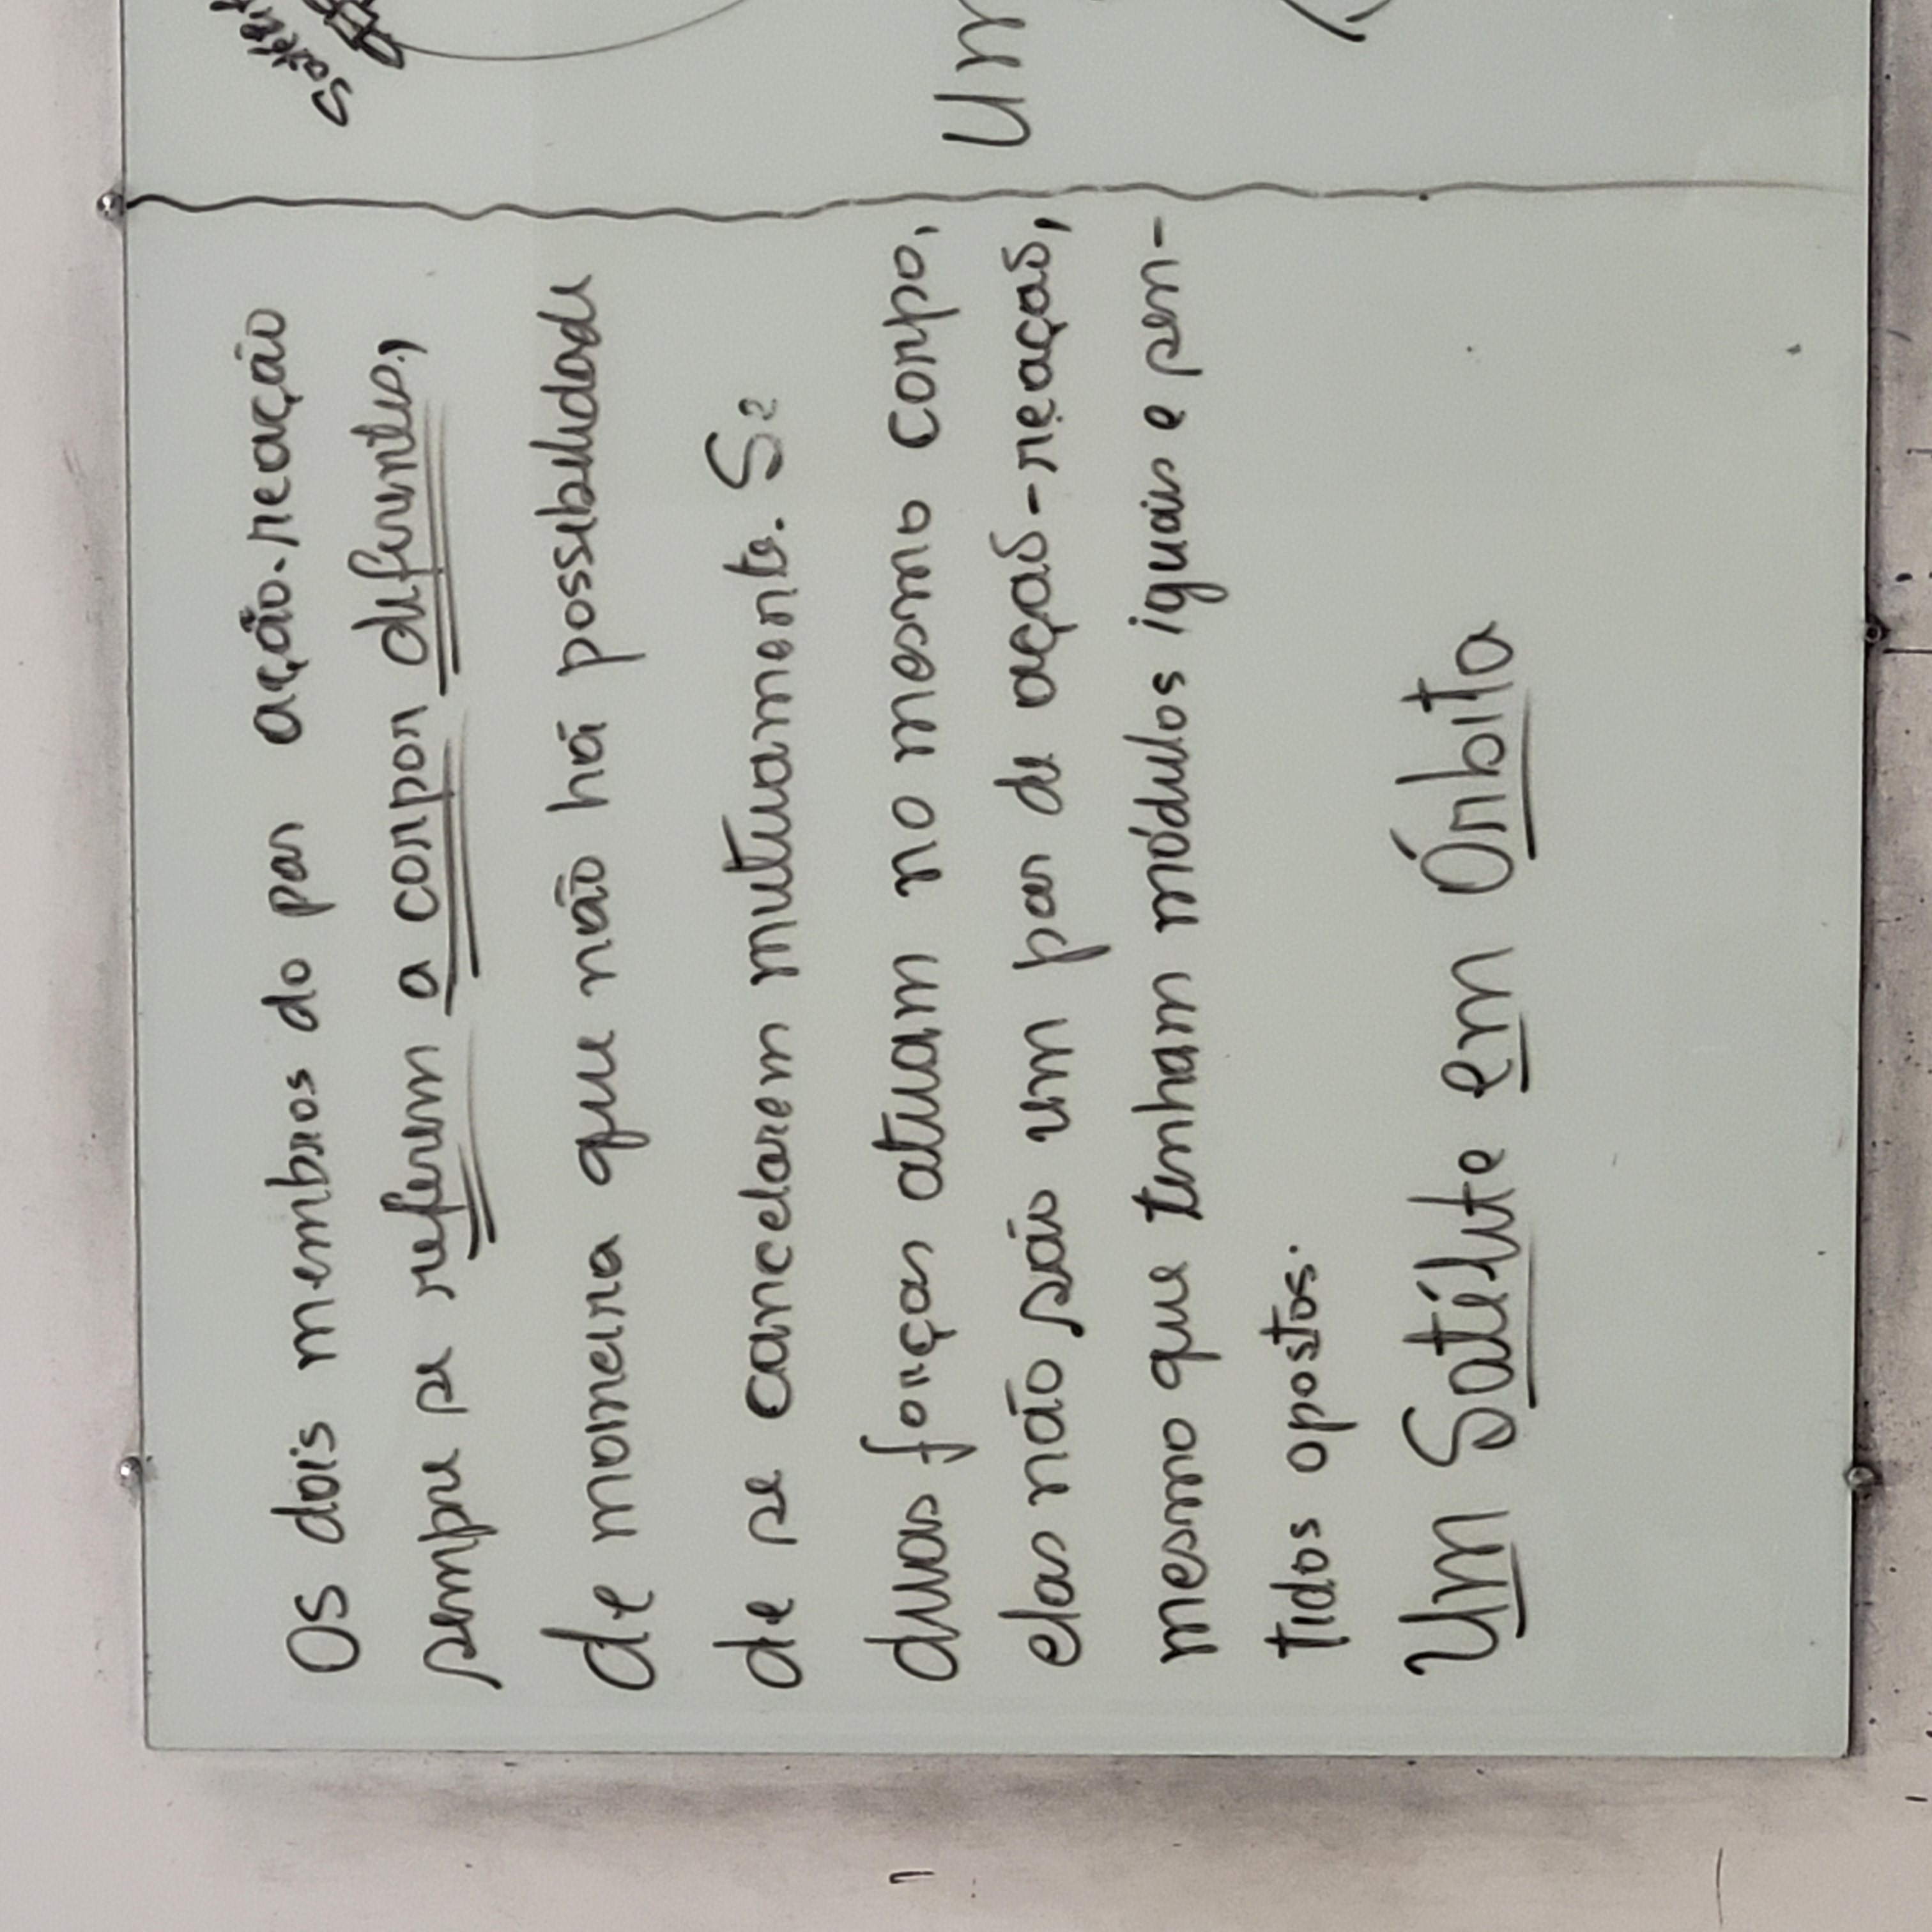 Os dois membros do par ação-reação
sempre se referem a corpor diferentes,
de maneira que não há possibilidade
de se cancelarem mutuamente. Se
duas forças atuam no mesmo corpo,
elas não são um par de ações-reações,
mesmo que tenham módulos iguais e sen-
tidos opostos.
Um Satélite em Órbita
Um